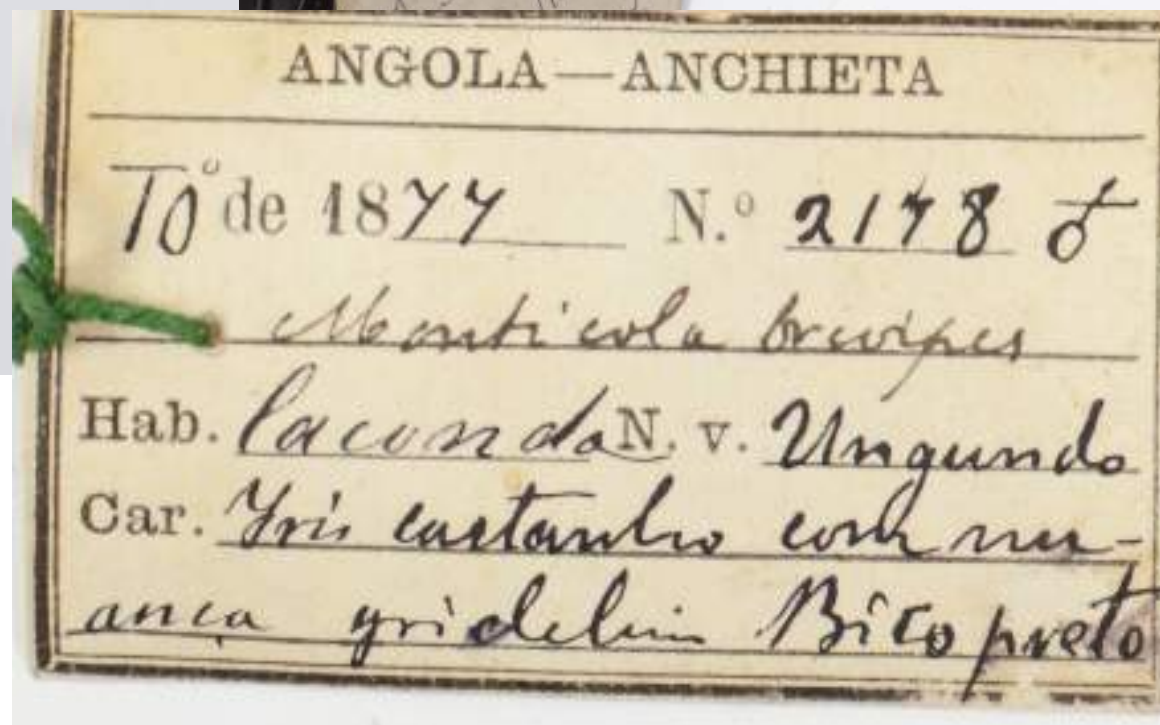 ANGOLA—ANCHIETA
10º de 1877 N.º 2178 ♂
Monticola brevipes
Hab. Caconda N. v. Ungundo
Car. Yris castanho com nu-
ança gridelim Bico preto